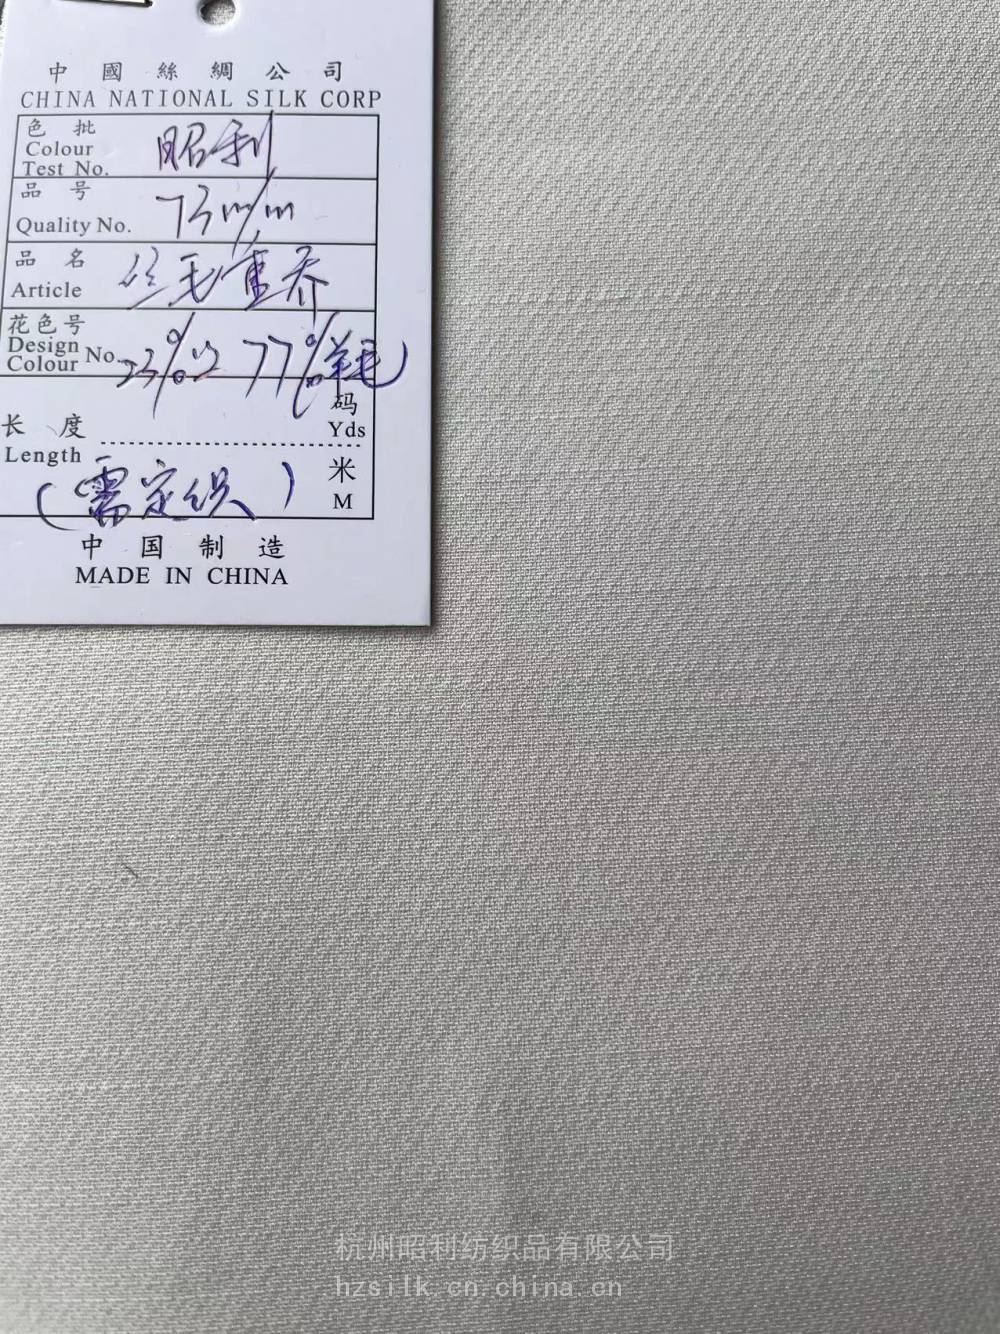 中國絲綢公司
CHINA NATIONAL SILK CORP
色 批
Colour
Test No.
昭利
品 号
Quality No.
73m/m
品 名
Article
丝毛重乔
花色号
Design
Colour No.
23%丝 77%羊毛
长 度
Length
码
Yds
米
M
(需定织)
中国制造
MADE IN CHINA
杭州昭利纺织品有限公司
hzsilk.cn.china.cn